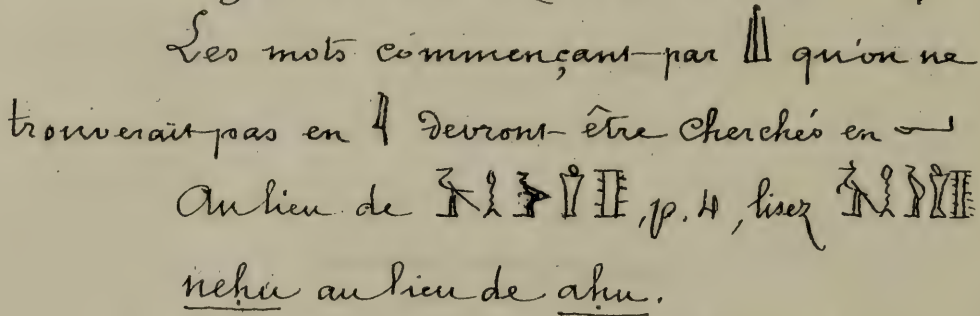 Les mots commençant par 𓇌 qu'on ne
trouverait pas en 𓇋 devront être cherchés en 𓂝
Au lieu de , p. 4, lisez
neḥu au lieu de aḥu.